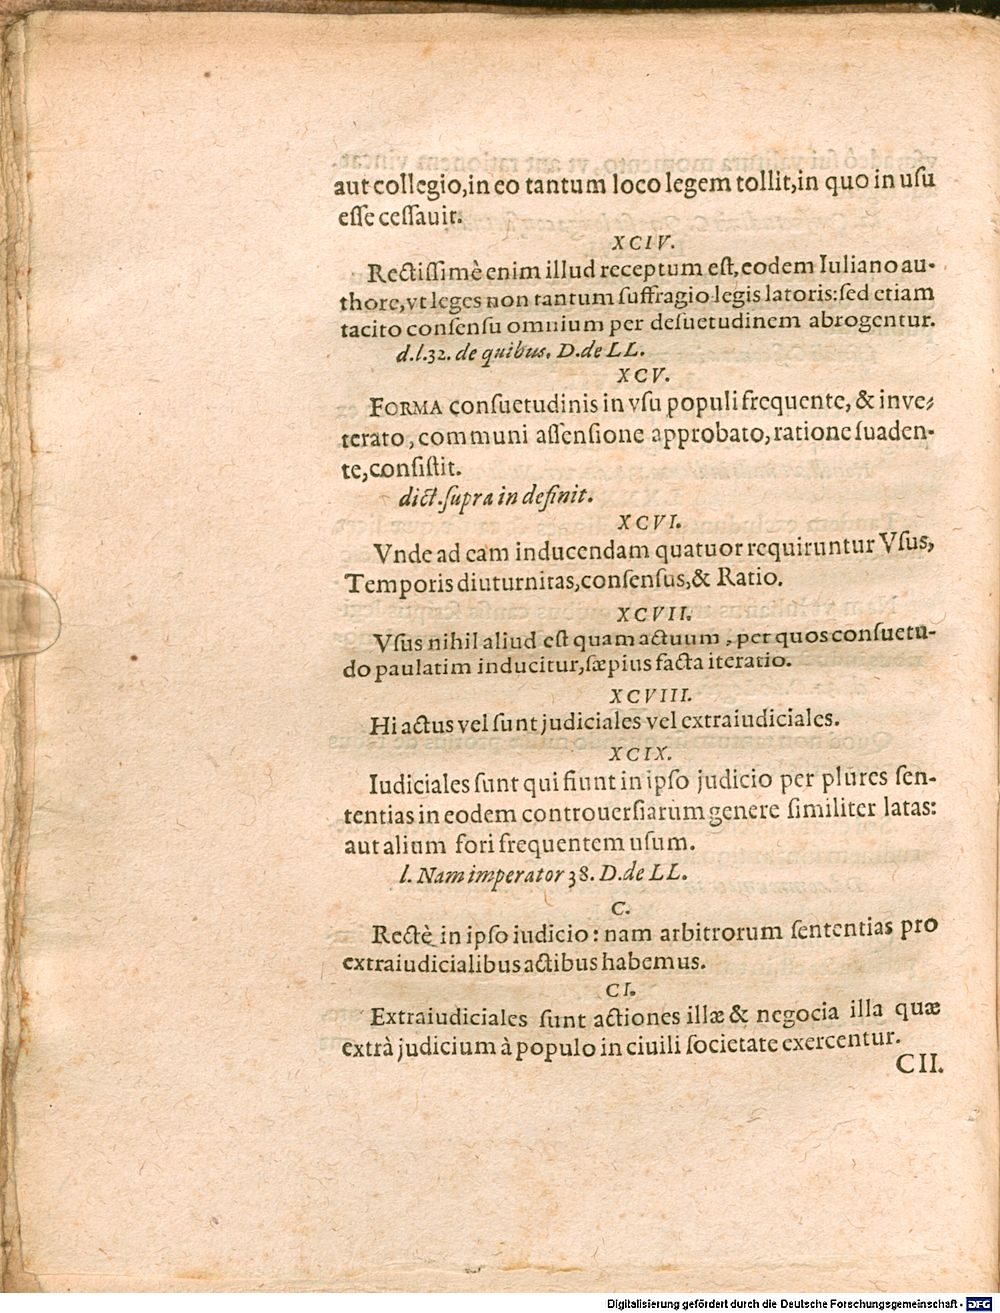 aut collegio, in eo tantum loco legem tollit, in quo in uſu
eſſe ceſſavit.
XCIV.
Rectiſſimè enim illud receptum eſt, eodem Iuliano au-
thore, vt leges non tantum ſuffragio legis latoris: ſed etiam
tacito conſenſu omnium per deſuetudinem abrogentur.
d. l. 32. de quibus. D. de LL.
XCV.
FORMA conſuetudinis in vſu populi frequente, & inve-
terato, communi aſſenſione approbato, ratione ſuaden-
te, conſiſtit.
dict. ſupra in definit.
XCVI.
Vnde ad eam inducendam quatuor requiruntur Vſus,
Temporis diuturnitas, conſenſus, & Ratio.
XCVII.
Vſus nihil aliud eſt quam actuum, per quos conſuetu-
do paulatim inducitur, ſæpius facta iteratio.
XCVIII.
Hi actus vel ſunt judiciales vel extraiudiciales.
XCIX.
Iudiciales ſunt qui fiunt in ipſo judicio per plures ſen-
tentias in eodem controuerſiarum genere ſimiliter latas:
aut alium fori frequentem uſum.
l. Nam imperator 38. D. de LL.
C.
Rectè in ipſo iudicio: nam arbitrorum ſententias pro
extraiudicialibus actibus habemus.
CI.
Extraiudiciales ſunt actiones illæ & negocia illa quæ
extrà judicium à populo in ciuili ſocietate exercentur.
CII.
Digitalisierung gefördert durch die Deutsche Forschungsgemeinschaft - DFG